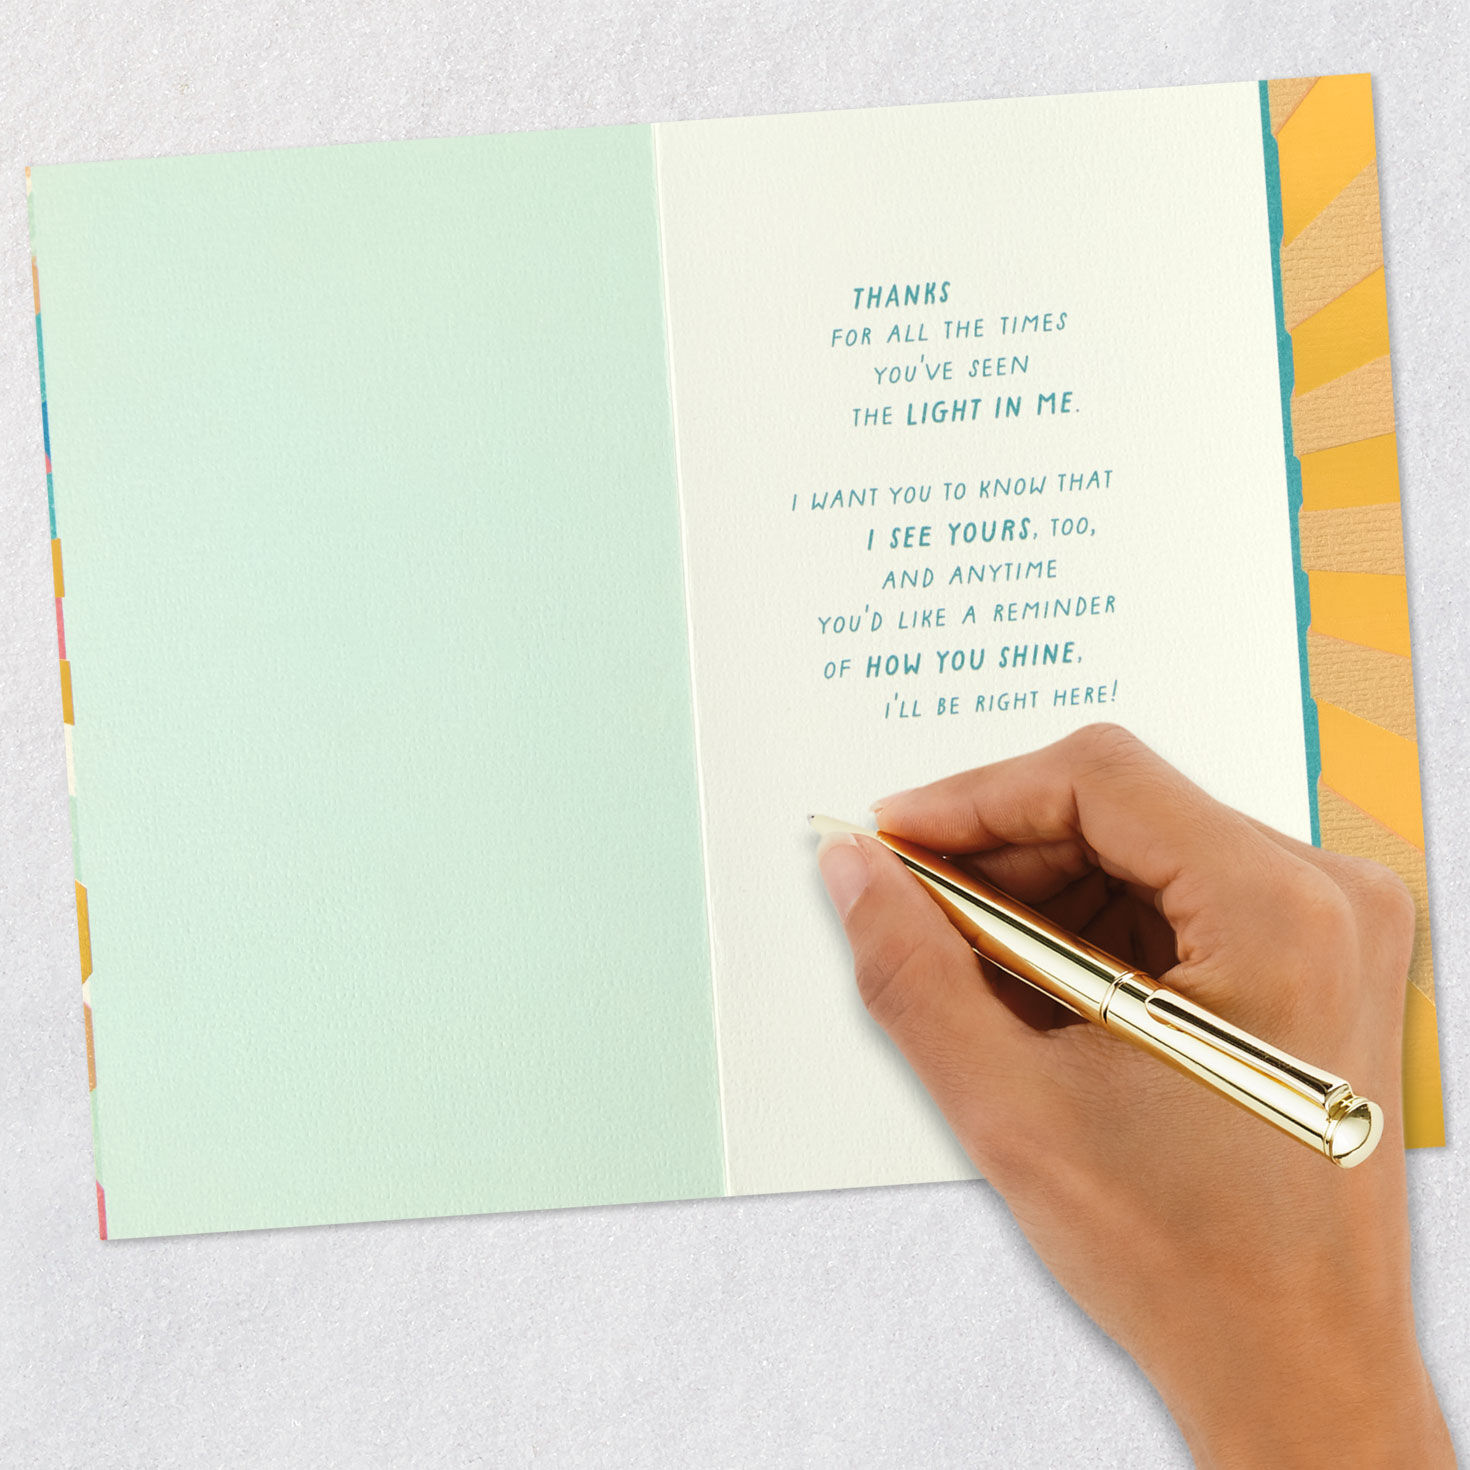 THANKS
FOR ALL THE TIMES
YOU'VE SEEN
THE LIGHT IN ME.
I WANT YOU TO KNOW THAT
I SEE YOURS, TOO,
AND ANYTIME
YOU'D LIKE A REMINDER
OF HOW YOU SHINE,
I'LL BE RIGHT HERE!